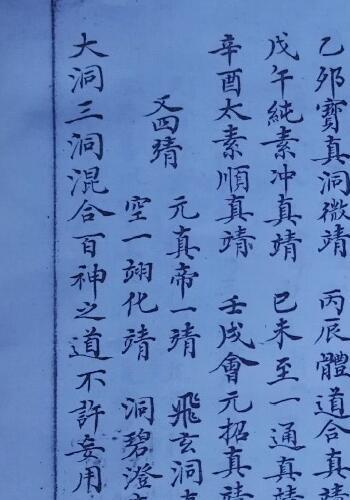 乙夘寳真洞微靖 丙辰體道合真靖
戊午純素冲真靖 己未至一通真靖
辛酉太素順真靖 壬戌會元招真靖
又四靖
元真帝一靖 飛玄洞真
空一翊化靖 洞碧澄
大洞三洞混合百神之道不許妄用